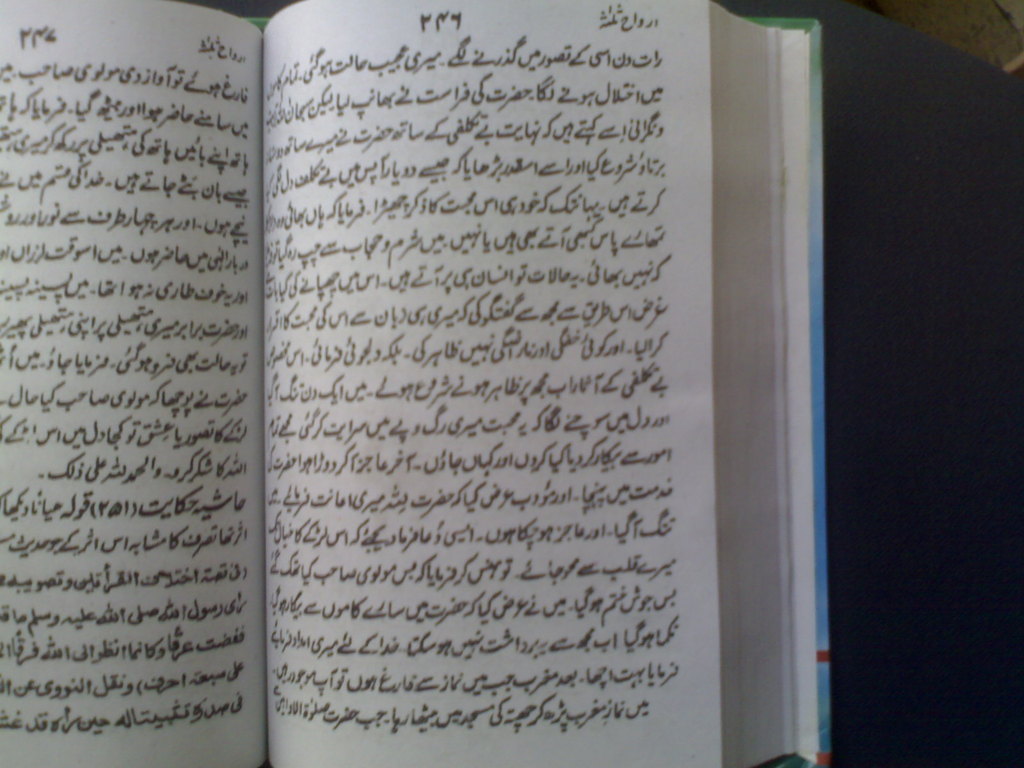 ارواح ثلثہ
۲۴۶
رات دن اسی کے تصور میں گذرنے لگے۔ میری عجیب حالت ہوگئی۔ تمام کاموں
میں اختلال ہونے لگا حضرت کی فراست نے بھانپ لیا لیکن سبحان اللہ
ونگرانی اسے کہتے ہیں کہ نہایت بے تکلفی کے ساتھ حضرت نے میرے ساتھ دوستانہ
برتاؤ شروع کیا اور اسے اسقدر بڑھایا کہ جیسے دو یار آپس میں بے تکلف دل لگی کیا
کرتے ہیں۔ یہانتک کہ خود ہی اس محبت کا ذکر چھیڑا۔ فرمایا کہ ہاں بھائی وہ
تمھارے پاس کبھی آتے بھی ہیں یا نہیں۔ میں شرم و حجاب سے چپ رہ گیا تو فرمایا
کہ نہیں بھائی۔ یہ حالات تو انسان ہی پر آتے ہیں۔ اس میں چھپانے کی کیا بات
غرض اس طریق سے مجھ سے گفتگو کی کہ میری ہی زبان سے اس کی محبت کا اقرار
کرالیا۔ اور کوئی خفگی اور ناراضگی نہیں ظاہر کی۔ بلکہ دلجوئی فرمائی۔ اس مخصوص
بے تکلفی کے آثار اب مجھ پر ظاہر ہونے شروع ہوئے۔ میں ایک دن تنگ آگیا
اور دل میں سوچنے لگا کہ یہ محبت میری رگ و پے میں سرایت کر گئی مجھے تمام
امور سے بیکار کر دیا کیا کروں اور کہاں جاؤں۔ آخر عاجز آکر دوڑا ہوا حضرت کی
خدمت میں پہنچا۔ اور مؤدب عرض کیا کہ حضرت للہ میری اعانت فرمائیے میں
تنگ آگیا۔ اور عاجز ہو چکا ہوں۔ ایسی دعا فرما دیجئے کہ اس لڑکے کا خیال تک
میرے قلب سے محو ہو جائے۔ تو ہنس کر فرمایا کہ بس مولوی صاحب کیا تھک گئے
بس جوش ختم ہوگیا۔ میں نے عرض کیا کہ حضرت میں سارے کاموں سے بیکار ہو گیا
نکما ہوگیا۔ اب مجھ سے یہ برداشت نہیں ہو سکتا۔ خدا کے لئے میری امداد فرمائیے
فرمایا بہت اچھا۔ بعد مغرب جب میں نماز سے فارغ ہوں تو آپ موجود رہیں۔
میں نماز مغرب پڑھ کر چھتہ کی مسجد میں بیٹھا رہا۔ جب حضرت صلوٰۃ الاوابین
ارواح ثلثہ
۲۴۷
فارغ ہوئے تو آواز دی مولوی صاحب۔ میں
میں سامنے حاضر ہوا اور بیٹھ گیا۔ فرمایا کہ ہاتھ
ہاتھ اپنے بائیں ہاتھ کی ہتھیلی پر رکھ کر میری ہتھیلی
جیسے بان بٹے جاتے ہیں۔ خدا کی قسم میں نے
نیچے ہوں۔ اور ہر چہار طرف سے نور اور روشنی
دربار الٰہی میں حاضر ہوں۔ میں اسوقت لرزاں اور
اور یہ خوف طاری نہ ہوا تھا۔ میں پسینہ پسینہ
اور حضرت برابر میری ہتھیلی پر اپنی ہتھیلی پھیر
تو یہ حالت بھی فرو ہوگئی۔ فرمایا جاؤ۔ میں
حضرت نے پوچھا کہ مولوی صاحب کیا حال
لڑکے کا تصور یا عشق تو کجا دل میں اس لڑکے کی
اللہ کا شکر کرو۔ والحمد للہ علی ذلک۔
حاشیہ حکایت (۲۵۱) قولہ
اثر تھا تصرف کا مشابہ اس اثر کے جو حدیث
(فی قصۃ اختلاف القرأتین وتصویبہ
رأی رسول اللہ صلی اللہ علیہ وسلم ما قد
ففضت عرقا وکانما انظر الی اللہ فرقا
علی سبعۃ احرف) ونقل النووی عن
فی صدرہ تثبیتا لہ حین رآہ قد